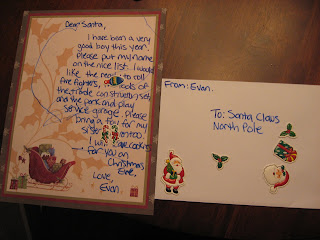 Dear Santa,
I have been a very
good boy this year.
please put my name
on the nice list. I would
like the ready to roll
fire fighters, tools of
the trade construction set,
and the park and play
service garage. please
bring a toy for my
sister too.
I will cookies
for you on
Christmas
Eve.
Love,
Evan
From: Evan.
To: Santa Claus
North Pole